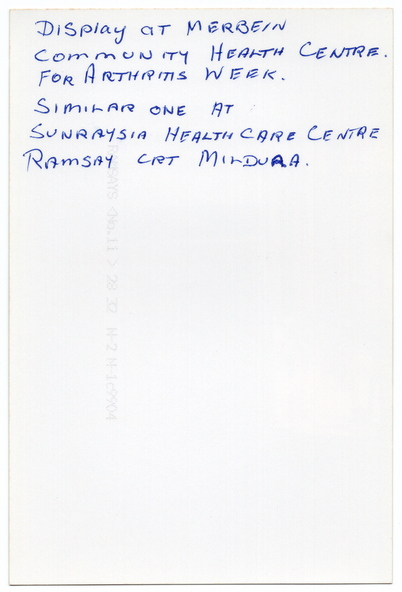 Display at Merbein
Community Health Centre.
For Arthritis Week.
Similar one at
Sunraysia Health Care Centre
Ramsay Crt Mildura.